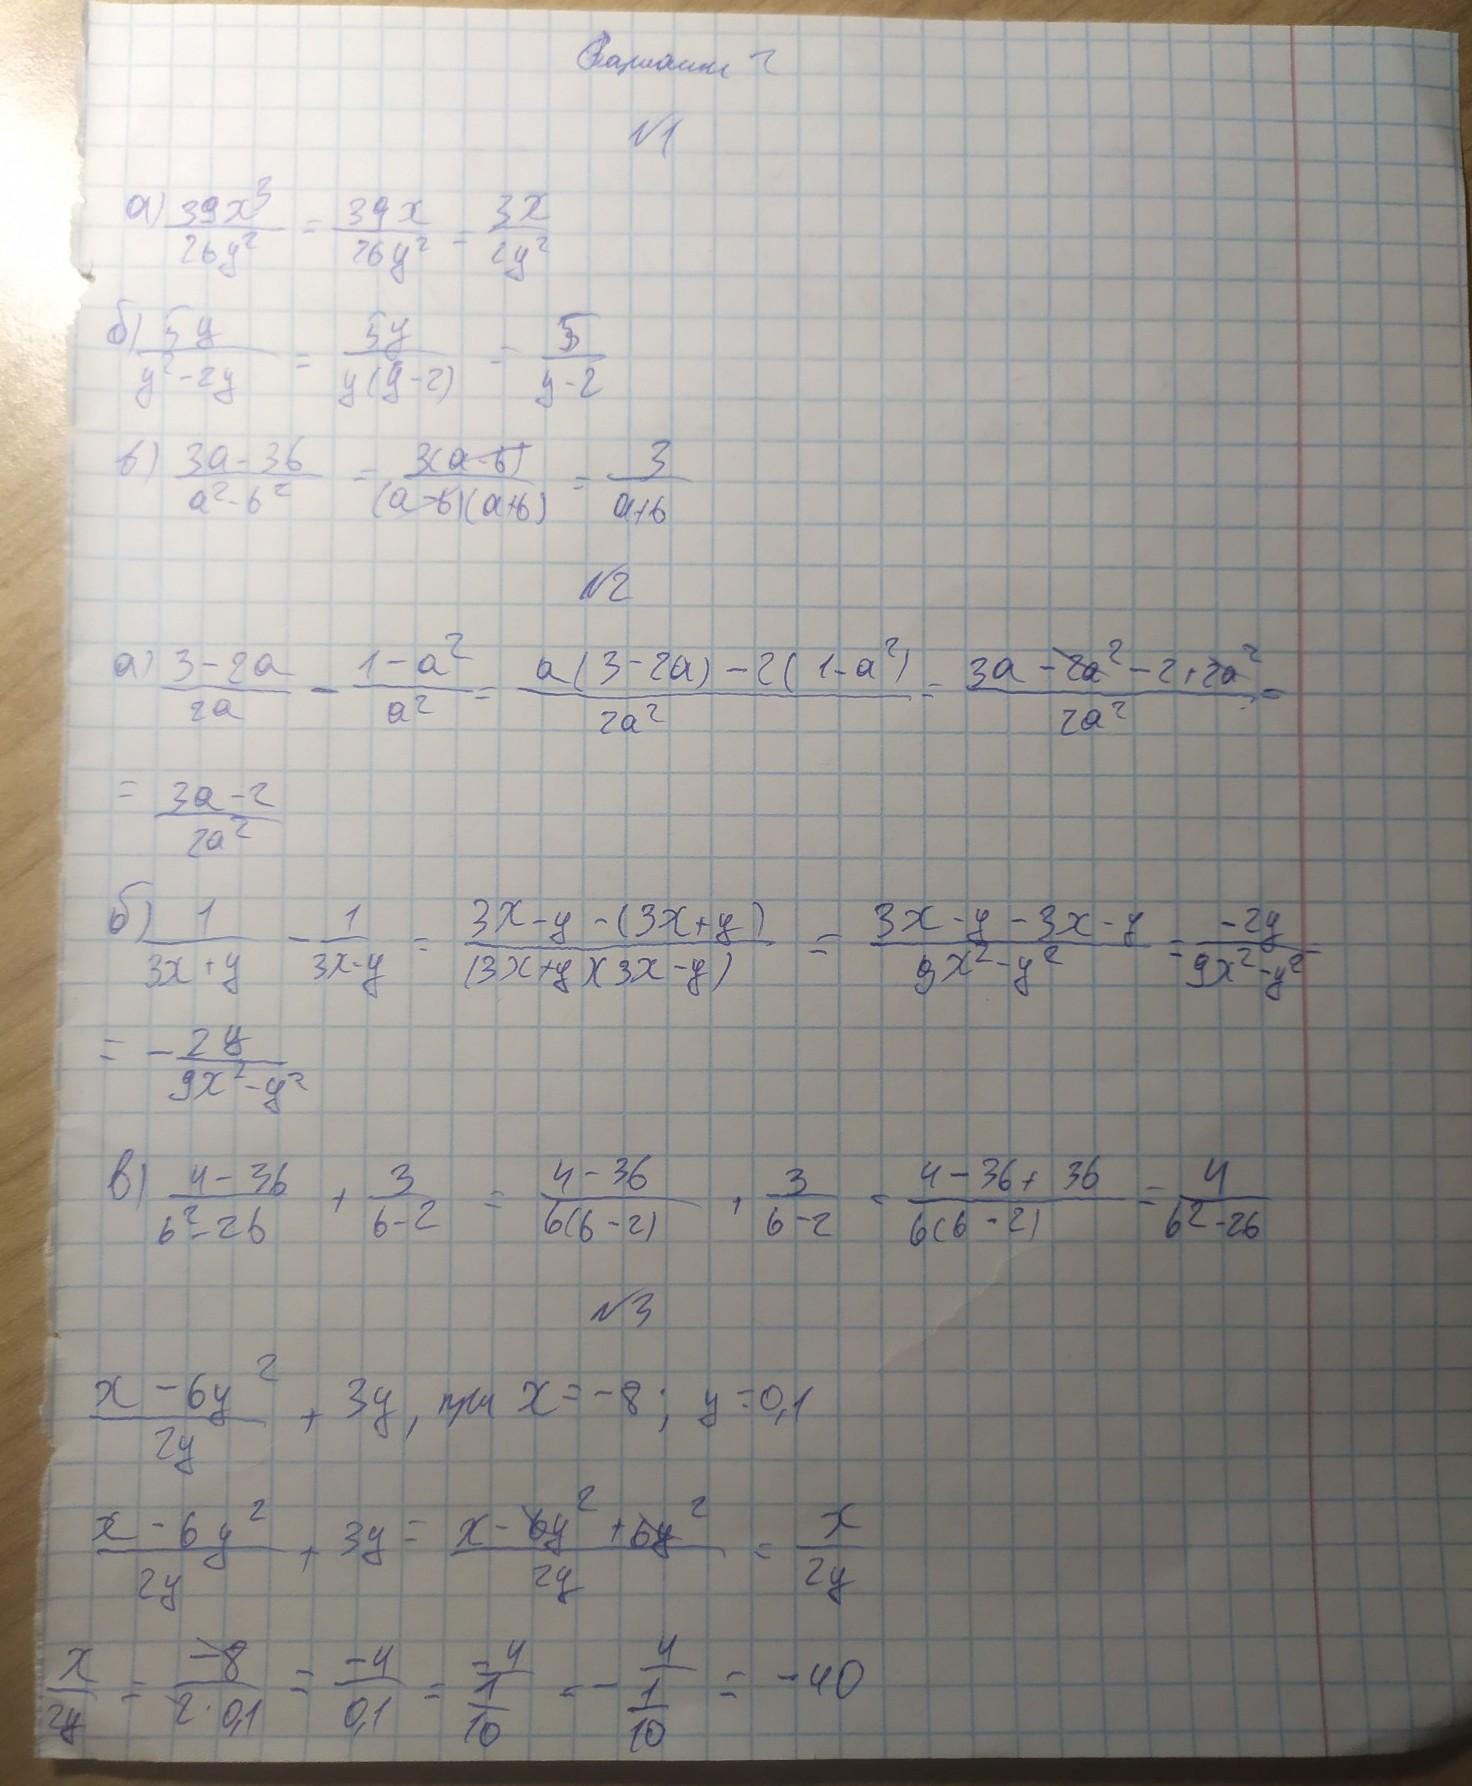 Вариант 2
№1
а) 39x³/26y² = 39x/26y² = 3x/2y²
б) 5y/(y²-2y) = 5y/(y(y-2)) = 5/(y-2)
в) (3a-3b)/(a²-b²) = 3(a-b)/((a-b)(a+b)) = 3/(a+b)
№2
а) (3-2a)/2a - (1-a²)/a² = (a(3-2a)-2(1-a²))/2a² = (3a-2a²-2+2a²)/2a² =
= (3a-2)/2a²
б) 1/(3x+y) - 1/(3x-y) = (3x-y-(3x+y))/((3x+y)(3x-y)) = (3x-y-3x-y)/(9x²-y²) = -2y/(9x²-y²) =
= - 2y/(9x²-y²)
в) (4-3b)/(b²-2b) + 3/(b-2) = (4-3b)/(b(b-2)) + 3/(b-2) = (4-3b+3b)/(b(b-2)) = 4/(b²-2b)
№3
(x-6y²)/2y + 3y, при x=-8; y=0,1
(x-6y²)/2y + 3y = (x-6y²+6y²)/2y = x/2y
x/2y = -8/(2·0,1) = -4/0,1 = -4/(1/10) = - 4/(1/10) = -40